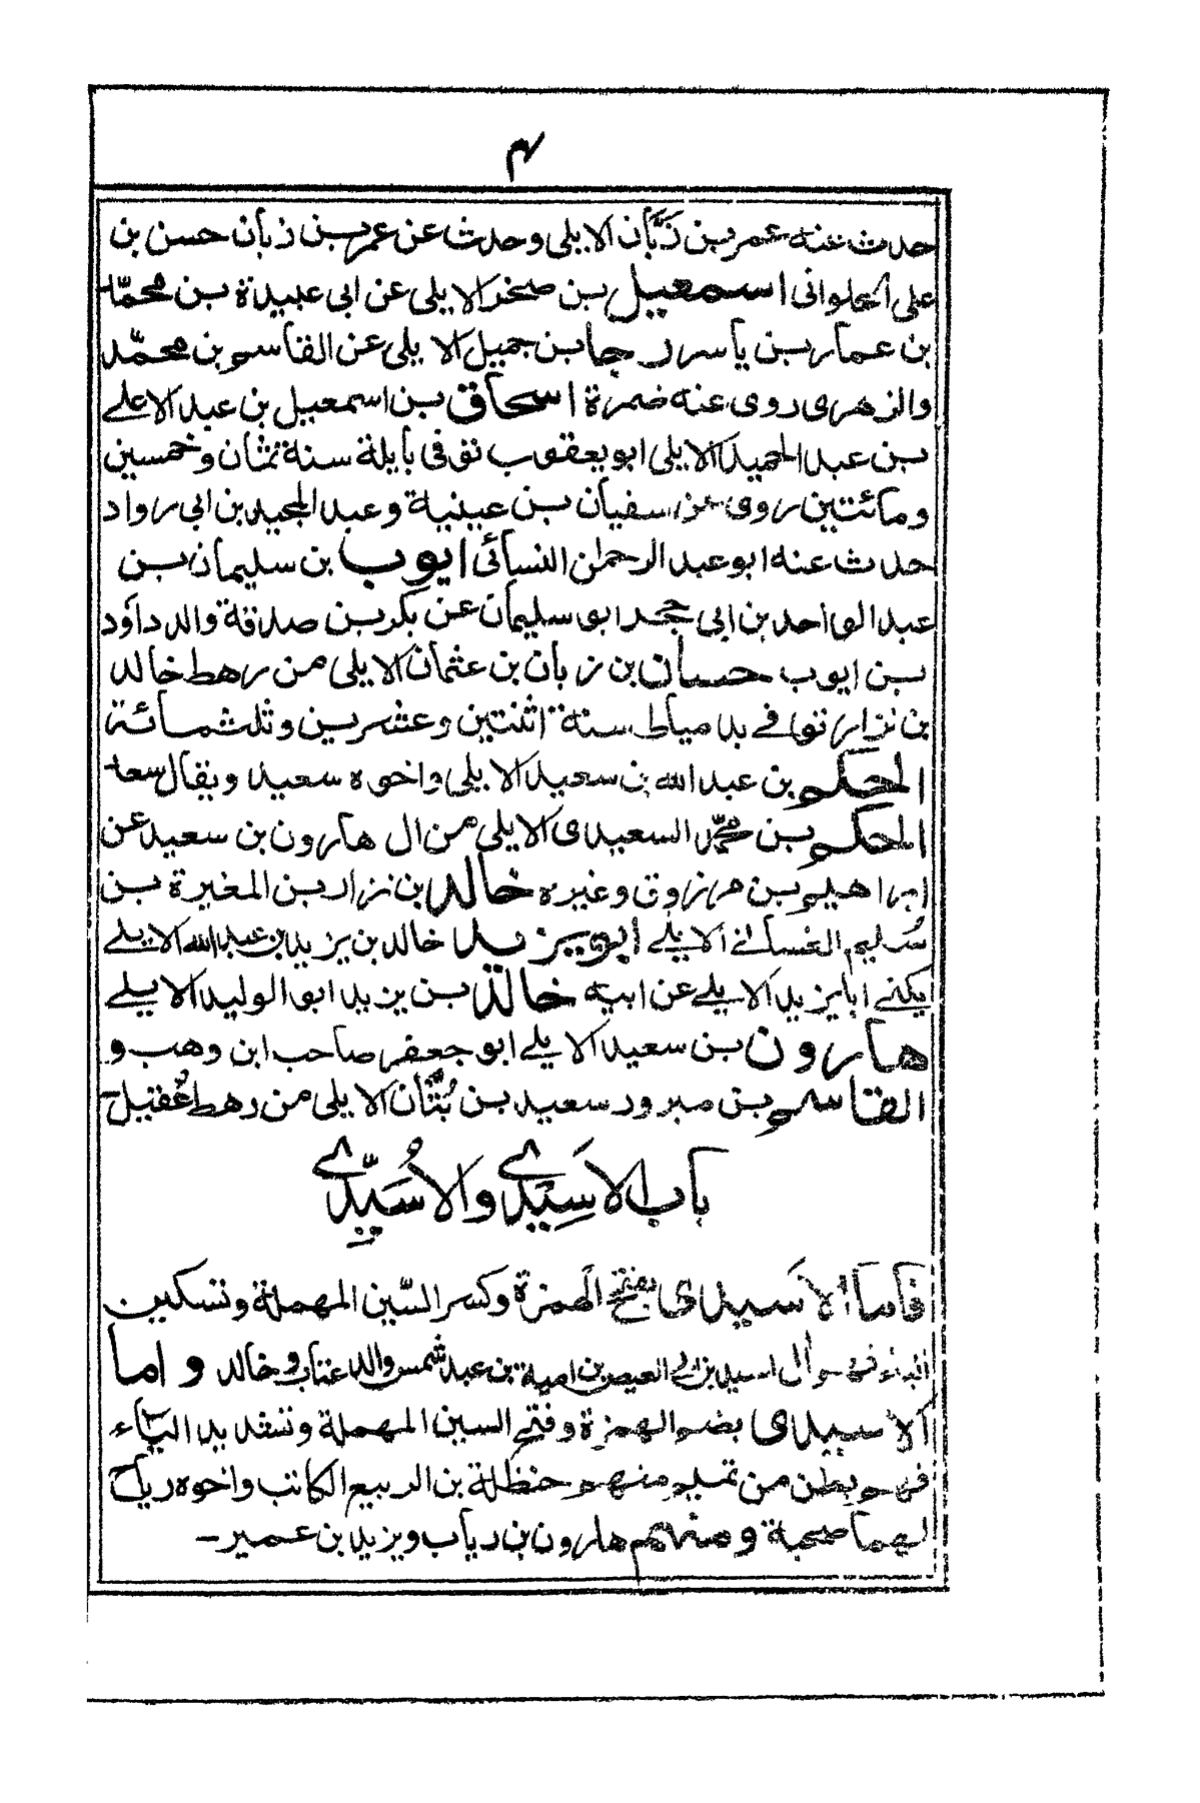 ٣
حدث عنه عمر بن زَبَّان الايلى وحدث عن عمر بن زبان حسن بن
على الحلوانى اسمعيل بن صخر الايلى عن ابى عبيدة بن محمّد
بن عمار بن ياسر رجا بن جميل الايلى عن القاسم بن محمّد
والزهرى روى عنه ضمرة اسحاق بن اسمعيل بن عبد الاعلے
بن عبد الحميد الايلى ابو يعقوب توفى بأيلة سنة ثمان وخمسين
ومائتين روى عن سفيان بن عيينة وعبد المجيد بن ابى رواد
حدث عنه ابو عبد الرحمان النسائى ايوب بن سليمان بن
عبد الواحد بن ابى حجر ابو سليمان عن بكر بن صدقة والد داود
بن ايوب حسان بن زبان بن عثمان الايلى من رهط خالد
بن نزار توفے بدمياط سنة اثنتين وعشرين وثلثمائة
الحكم بن عبد الله بن سعيد الايلى واخوه سعيد ويقال سعد
الحكم بن محمّد السعيدى الايلى من ال هارون بن سعيد عن
ابراهيم بن مرزوق وغيره خالد بن نزار بن المغيرة بن
سُليم الغسانے الايلے ابو يزيد خالد بن يزيد بن عبد الله الايلے
يكنے ابا يزيد الايلے عن ابيه خالد بن يزيد ابو الوليد الايلے
هارون بن سعيد الايلے ابو جعفر صاحب ابن وهب و
القاسم بن مبرور سعيد بن بُنَّان الايلى من رهط عُقيل
باب الاَسِيْدے والاُسَيِّدے
فاما الاَسيدى بفتح الهمزة وكسر السّين المهملة وتسكين
الياء فهو ال اسيد بن ابے العيص بن امية بن عبد شمس والد عتاب وخالد واما
الاسيدى بضم الهمزة وفتح السين المهملة وتشديد اليّاء
فهم بطن من تميم منهم حنظلة بن الربيع الكاتب واخوه رياح
لهما صحبة ومنهم هارون بن رياب ويزيد بن عمير ـ